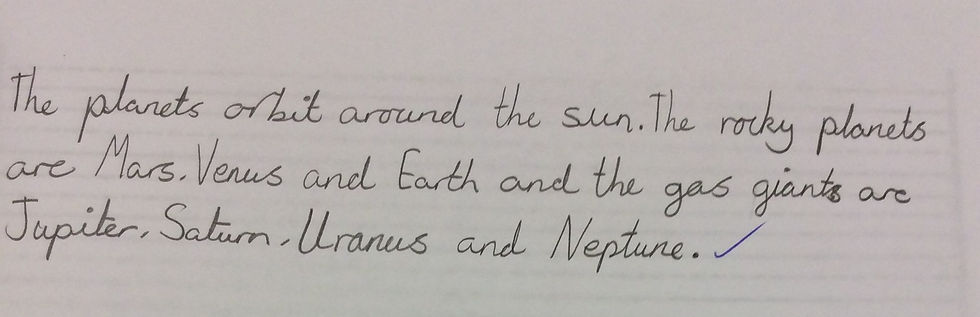 The planets orbit around the sun. The rocky planets
are Mars. Venus and Earth and the gas giants are
Jupiter. Saturn. Uranus and Neptune.